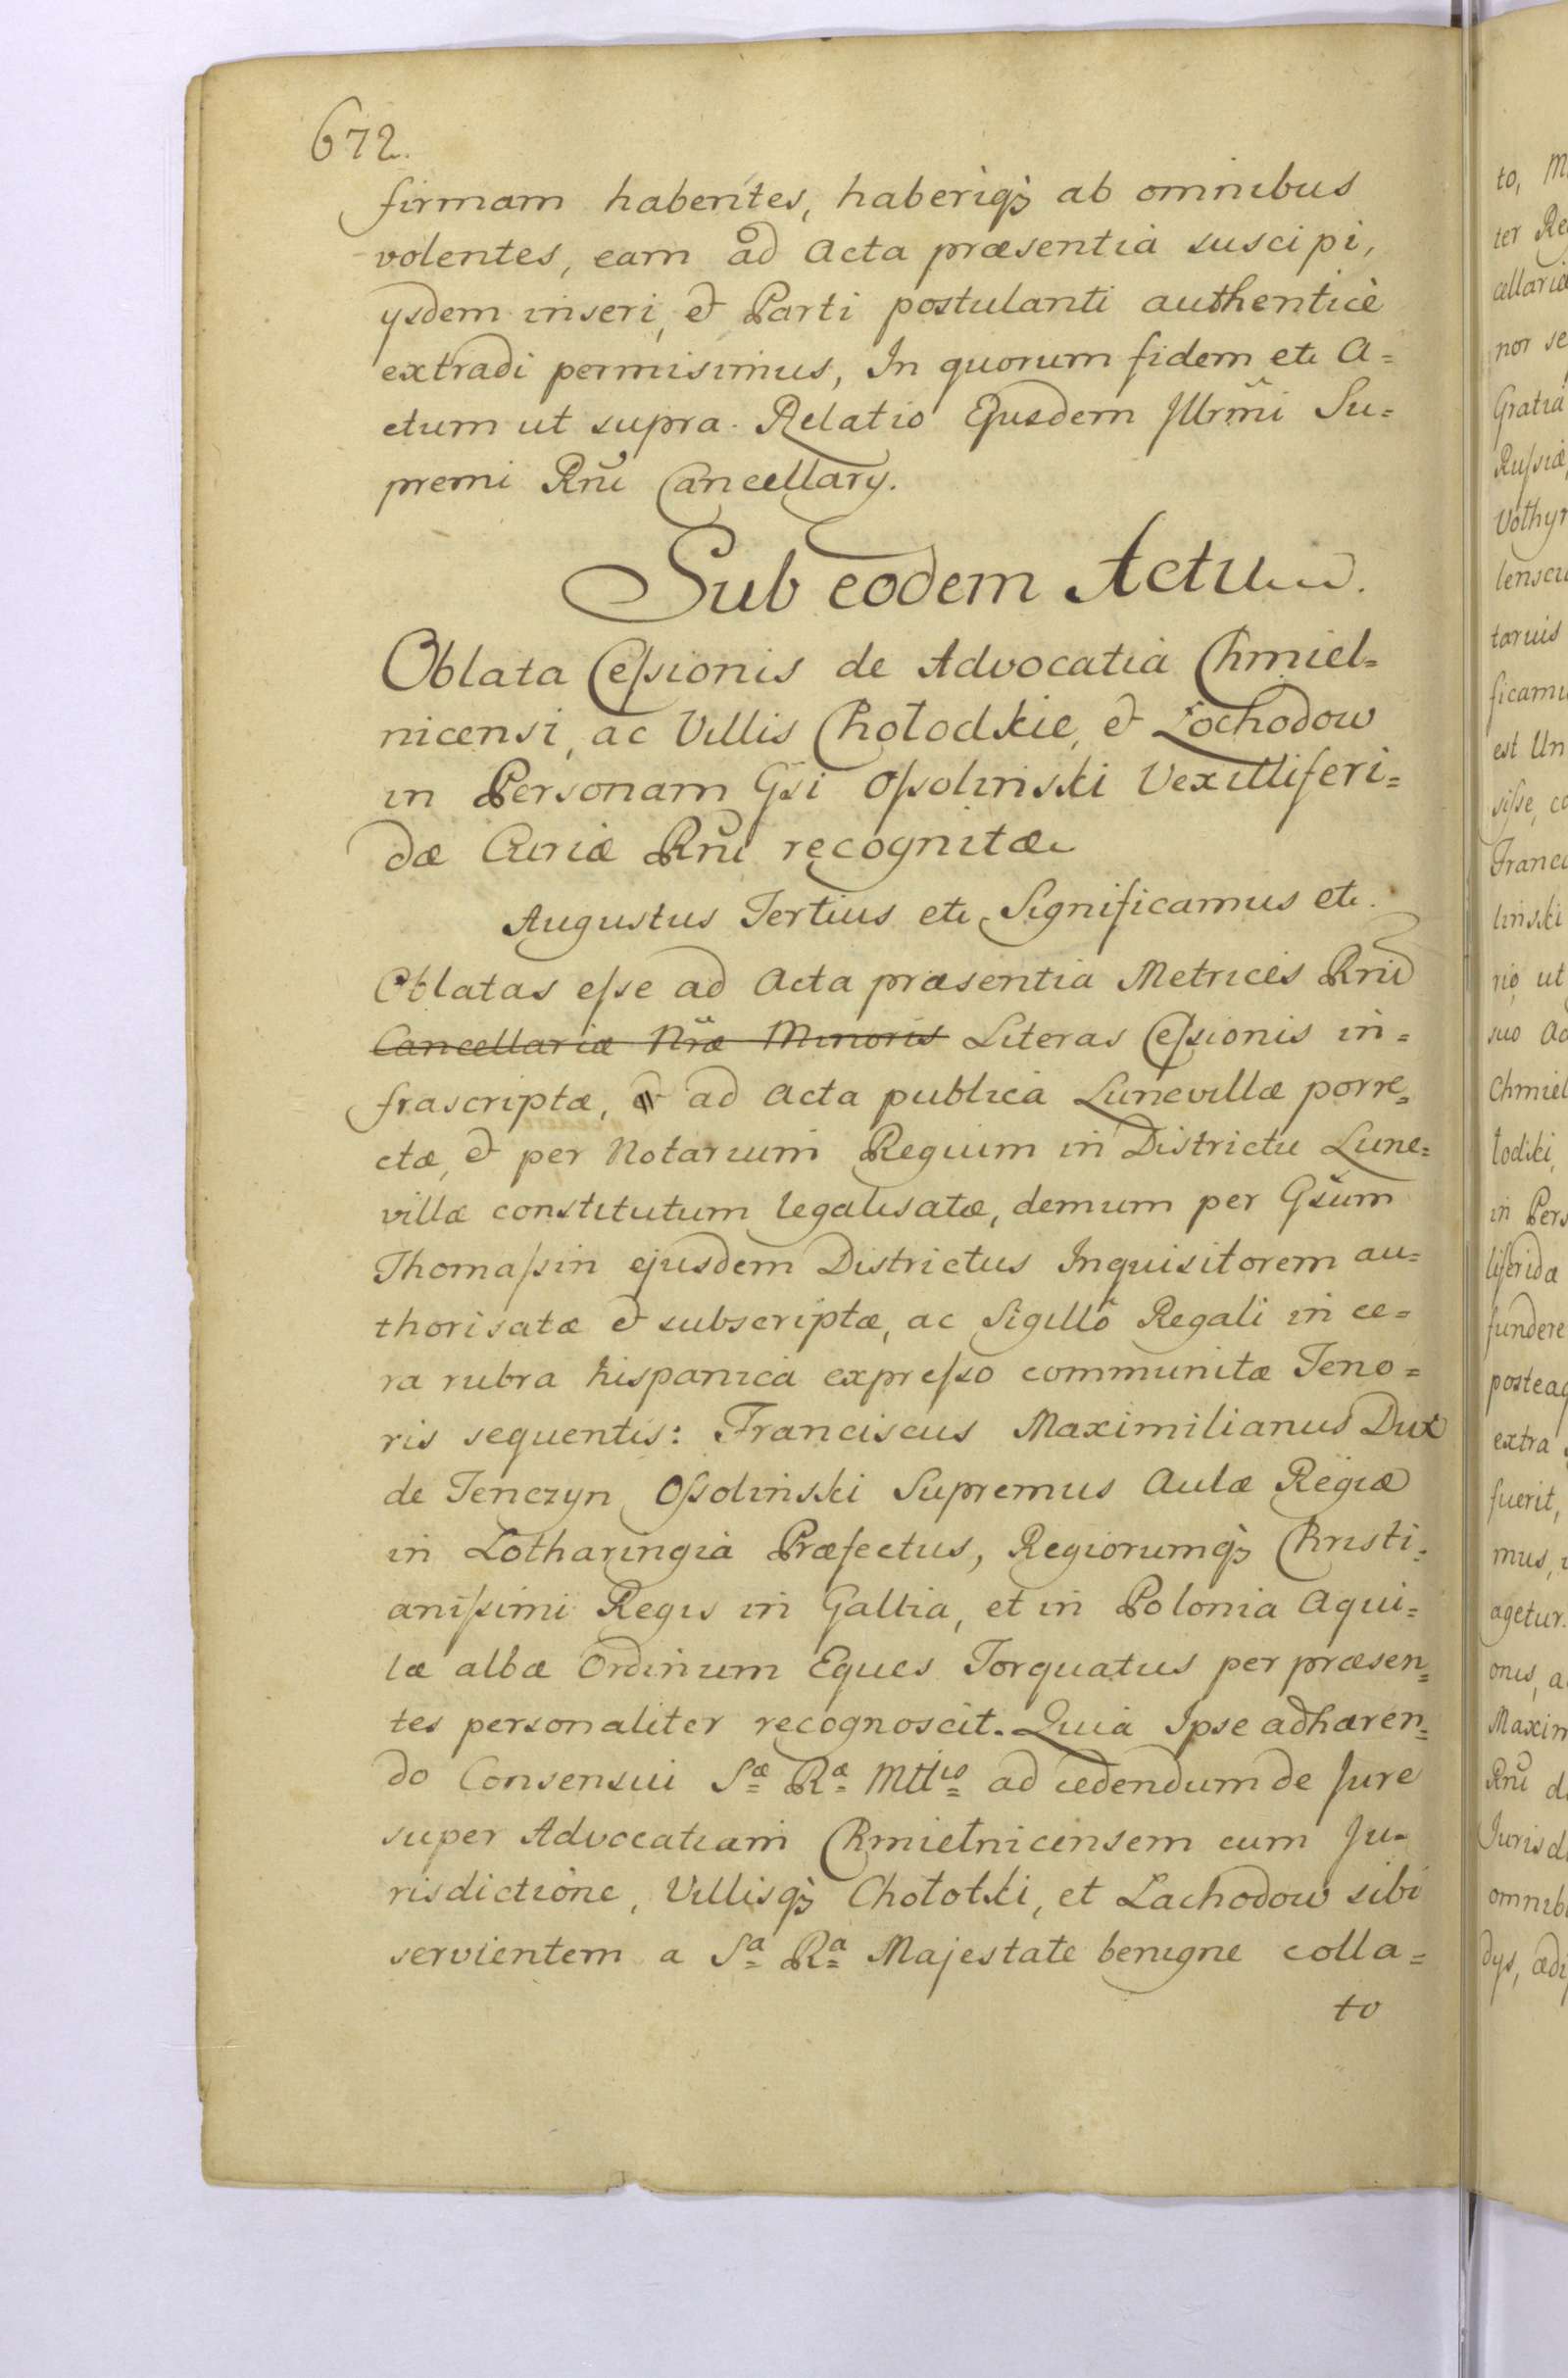 672.
firmam habentes, haberiq₃ ab omnibus
volentes, eam ad Acta præsentia suscipi,
ysdem inseri, & Parti postulanti authenticè
extradi permisimus, In quorum fidem etc A=
ctum ut supra. Relatio Ejusdem Illrm̃i Su=
premi Rñi Cancellary.
Sub eodem Actu.
Oblata Cessionis de Advocatia Chmiel=
nicensi, ac Villis Chołodkie, & Łochodow
in Personam Gsi Ossolinski Vexilliferi=
dæ Curiæ Rñi recognitæ
Augustus Tertius etc Significamus etc.
Oblatas esse ad Acta præsentia Metrices Rñi
Cancellariæ Nr̃æ Minoris Literas Cessionis in=
frascriptæ, & ad Acta publica Lunevillæ porre=
ctæ, & per Notarium Regium in Districtu Lune=
villæ constitutum legalisatæ, demum per Gsum
Thomassin ejusdem Districtus Inquisitorem au=
thorisatæ & subscriptæ, ac Sigillo Regali in ce=
ra rubra hispanica expresso communitæ Teno=
ris sequentis: Franciscus Maximilianus Dux
de Tenczyn Ossolinski Supremus Aulæ Regiæ
in Lotharingia Præfectus, Regiorumq₃ Christi=
anissimi Regis in Gallia, et in Polonia Aqui=
læ albæ Ordinum Eques Torquatus per præsen=
tes personaliter recognoscit. Quia Ipse adhæren=
do Consensui Sæ Ræ Mttis ad cedendum de Jure
super Advocatiam Chmielnicensem cum Ju=
risdictione, Villisq₃ Chołotki, et Lachodow sibi
servientem a Sa Ra Majestate benigne colla=
to
to, M
ter Re
allariæ
nor se
Gratia
Russiæ,
Vothyn
lenscu
taruis
ficamu
est Un
sisse, co
Franci
linski
rio ut
suo Ad
Chmiel
łodki,
in Pers
liferidæ
fundere
posteaq
extra
fuerit,
mus,
agetur.
onis, a
Maxim
Rñi d
Jurisd
omnib
dys, ædi